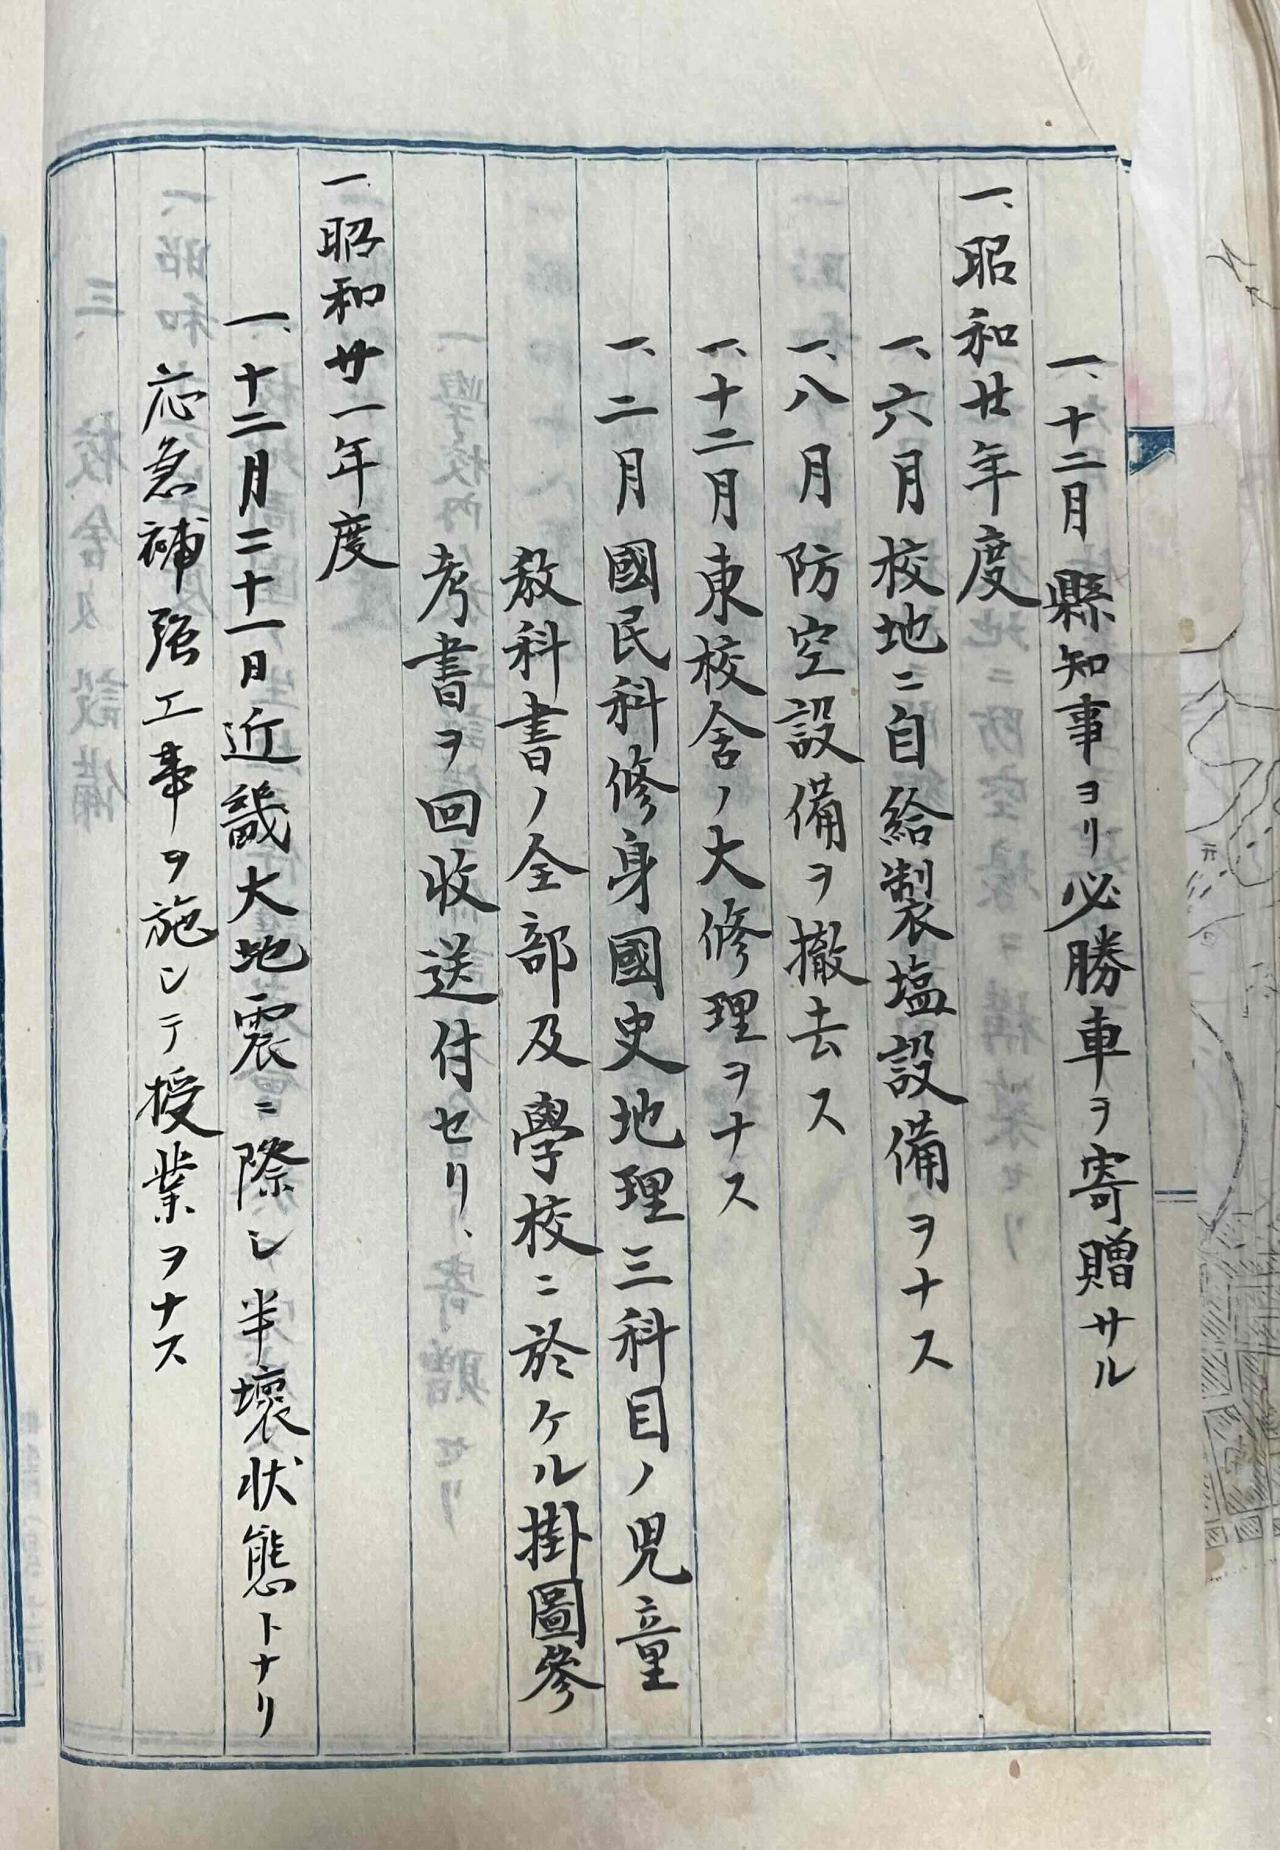 一、十二月縣知事ヨリ必勝車ヲ寄贈サル
一、昭和廿年度
一、六月校地ニ自給製塩設備ヲナス
一、八月防空設備ヲ撤去ス
一、十二月東校舎ノ大修理ヲナス
一、二月國民科修身國史地理三科目ノ児童
教科書ノ全部及學校ニ於ケル掛圖參
考書ヲ回收送付セリ、
一、昭和廿一年度
一、十二月二十一日近畿大地震ニ際シ半壞状態トナリ
応急補強工事ヲ施シテ授業ヲナス